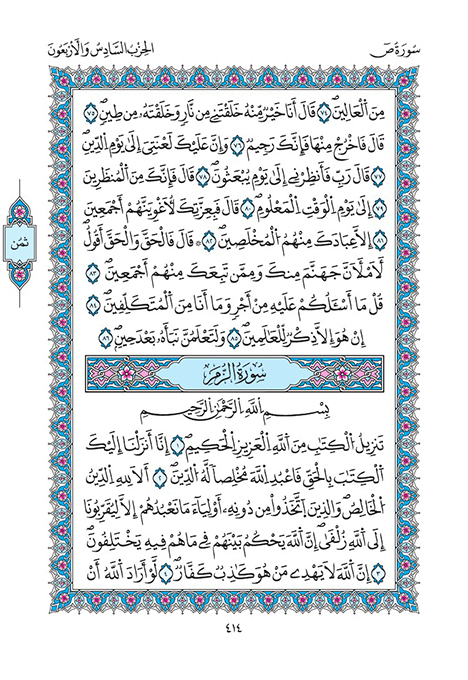 سُورَةُ صٓ
الحِزْبُ السَّادِسُ وَالْأَرْبَعُونَ
مِنَ اَلْعَالِينَ ٧٤ قَالَ أَنَا خَيْرٌ مِّنْهُ خَلَقْتَنِے مِن نّ۪ارٖ وَخَلَقْتَهُۥ مِن طِينٖ ٧٥
قَالَ فَاخْرُجْ مِنْهَا فَإِنَّكَ رَجِيمٞ ٧٦ وَإِنَّ عَلَيْكَ لَعْنَتِيَ إِلَىٰ يَوْمِ اِلدِّينِ
٧٧ قَالَ رَبِّ فَأَنظِرْنِے إِلَىٰ يَوْمِ يُبْعَثُونَ ٧٨ قَالَ فَإِنَّكَ مِنَ اَلْمُنظَرِينَ
٧٩ إِلَىٰ يَوْمِ اِلْوَقْتِ اِلْمَعْلُومِ ٨٠ قَالَ فَبِعِزَّتِكَ لَأُغْوِيَنَّهُمُ أَجْمَعِينَ
٨١ إِلَّا عِبَادَكَ مِنْهُمُ اُلْمُخْلَصِينَ ٨٢ قَالَ فَالْحَقَّ وَالْحَقَّ أَقُولُ
لَأَمْلَأَنَّ جَهَنَّمَ مِنكَ وَمِمَّن تَبِعَكَ مِنْهُمُ أَجْمَعِينَ ٨٣
قُلْ مَا أَسْـَٔلُكُمْ عَلَيْهِ مِنْ أَجْرٖ وَمَا أَنَا مِنَ اَلْمُتَكَلِّفِينَ ٨٤
إِنْ هُوَ إِلَّا ذِكْرٞ لِّلْعَالَمِينَ ٨٥ وَلَتَعْلَمُنَّ نَبَأَهُۥ بَعْدَ حِينٖ ٨٦
ثُمُن
سُورَةُ الزُّمَرِ
بِسْمِ اِللَّهِ اِلرَّحْمَٰنِ اِلرَّحِيمِ
تَنزِيلُ اُلْكِتَٰبِ مِنَ اَللَّهِ اِلْعَزِيزِ اِلْحَكِيمِ ١ إِنَّا أَنزَلْنَا إِلَيْكَ
اَلْكِتَٰبَ بِالْحَقِّ فَاعْبُدِ اِللَّهَ مُخْلِصاٗ لَّهُ اُلدِّينَ ٢ أَلَا لِلهِ اِلدِّينُ
اُلْخَالِصُ وَالذِينَ اَتَّخَذُواْ مِن دُونِهِۦ أَوْلِيَآءَ مَا نَعْبُدُهُمْ إِلَّا لِيُقَرِّبُونَا
إِلَى اَللَّهِ زُلْفَىٰ إِنَّ اَللَّهَ يَحْكُمُ بَيْنَهُمْ فِے مَا هُمْ فِيهِ يَخْتَلِفُونَ
٣ إِنَّ اَللَّهَ لَا يَهْدِے مَنْ هُوَ كَٰذِبٞ كَفَّارٞ ٤ لَّوْ أَرَادَ اَللَّهُ أَنْ
٤١٤